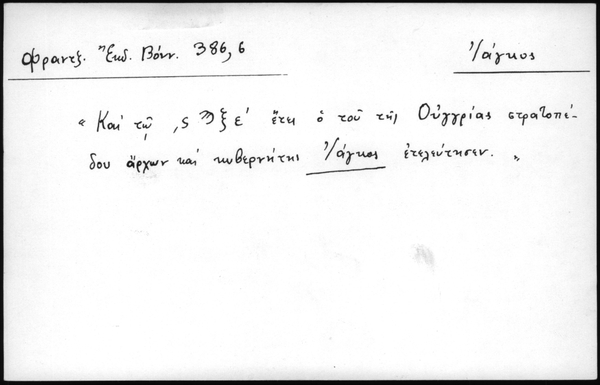 Φραντζ. Ἔκδ. Βόνν. 386,6
Ἰάγκος
« Καί τῷ ,ςϠξε' ἔτει ὁ τοῦ τῆς Οὐγγρίας στρατοπέ-
δου ἄρχων καί κυβερνήτης Ἰάγκος ἐτελεύτησεν. »